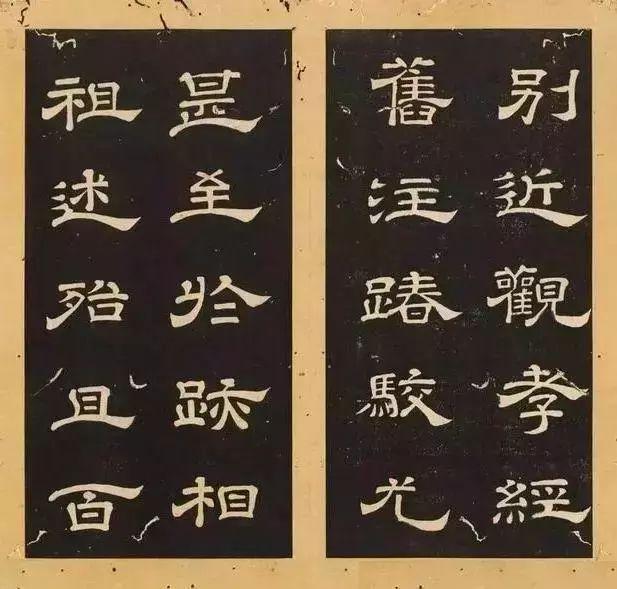 别近觀孝經
舊注踳駮尤
甚至於跡相
祖述殆且百